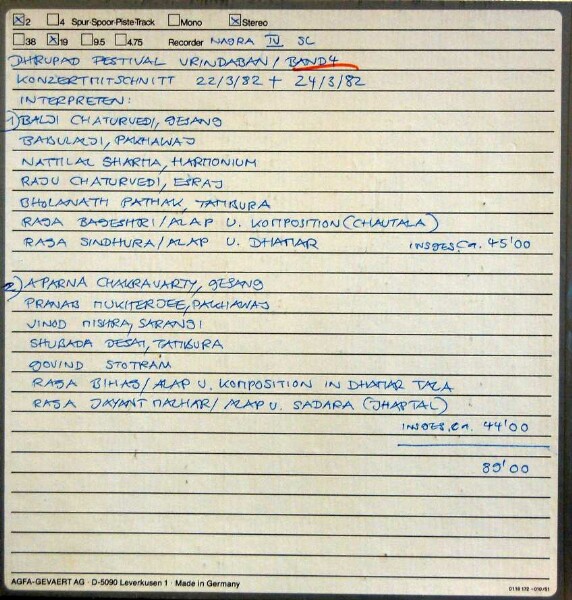 ☒2 ☐4 Spur·Spoor·Piste·Track ☐Mono ☒Stereo
☐38 ☒19 ☐9.5 ☐4.75 Recorder NAGRA IV SL
DHRUPAD FESTIVAL VRINDABAN / BAND 4
KONZERTMITSCHNITT 22/3/82 + 24/3/82
INTERPRETEN:
1) BALJI CHATURVEDI, GESANG
BABULALJI, PAKHAWAJ
NATTILAL SHARMA, HARMONIUM
RAJU CHATURVEDI, ESRAJ
BHOLANATH PATHAK, TAMBURA
RAGA BAGESHRI / ALAP U. KOMPOSITION (CHAUTALA)
RAGA SINDHURA / ALAP U. DHAMAR INSGES. CA. 45'00
2) APARNA CHAKRAVARTY, GESANG
PRANAB MUKHERJEE, PAKHAWAJ
VINOD MISHRA, SARANGI
SHUBADA DESAI, TAMBURA
GOVIND STOTRAM
RAGA BIHAG / ALAP U. KOMPOSITION IN DHAMAR TALA
RAGA JAYANT MALHAR / ALAP U. SADARA (JHAPTAL)
INSGES. CA. 44'00
89'00
AGFA-GEVAERT AG · D-5090 Leverkusen 1 · Made in Germany